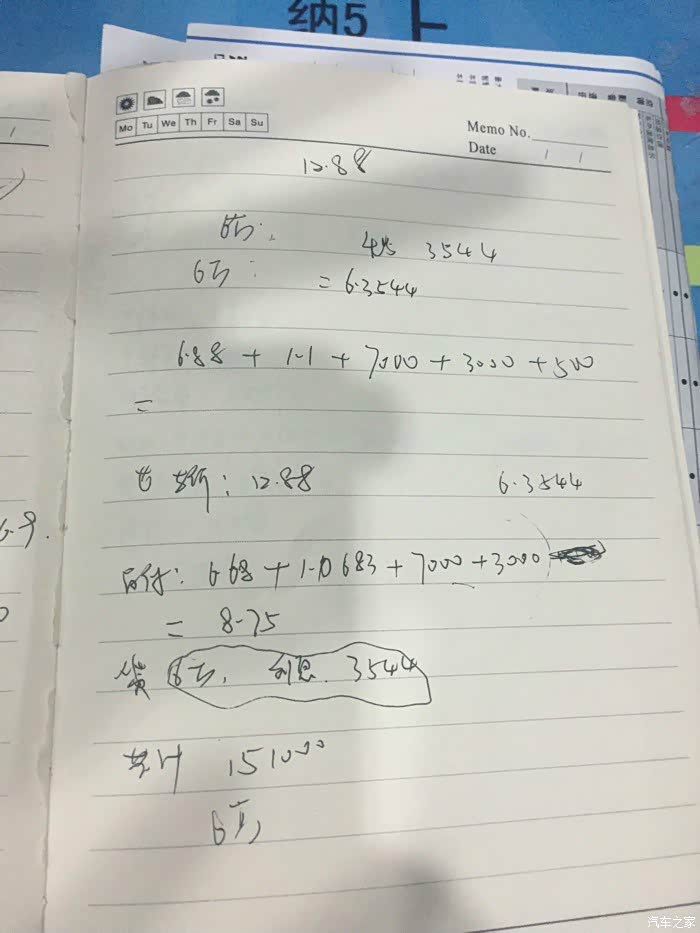 纳5
Mo Tu We Th Fr Sa Su
Memo No.
Date / /
12.88
6万:
3544
6万:
=6.3544
6.88 + 1.1 + 7000 + 3000 + 500
=
12.88
6.3544
首付: 6.68 + 1.0683 + 7000 + 3000
= 8.75
贷 6万, 利息. 3544
共计 151000
6万
汽车之家